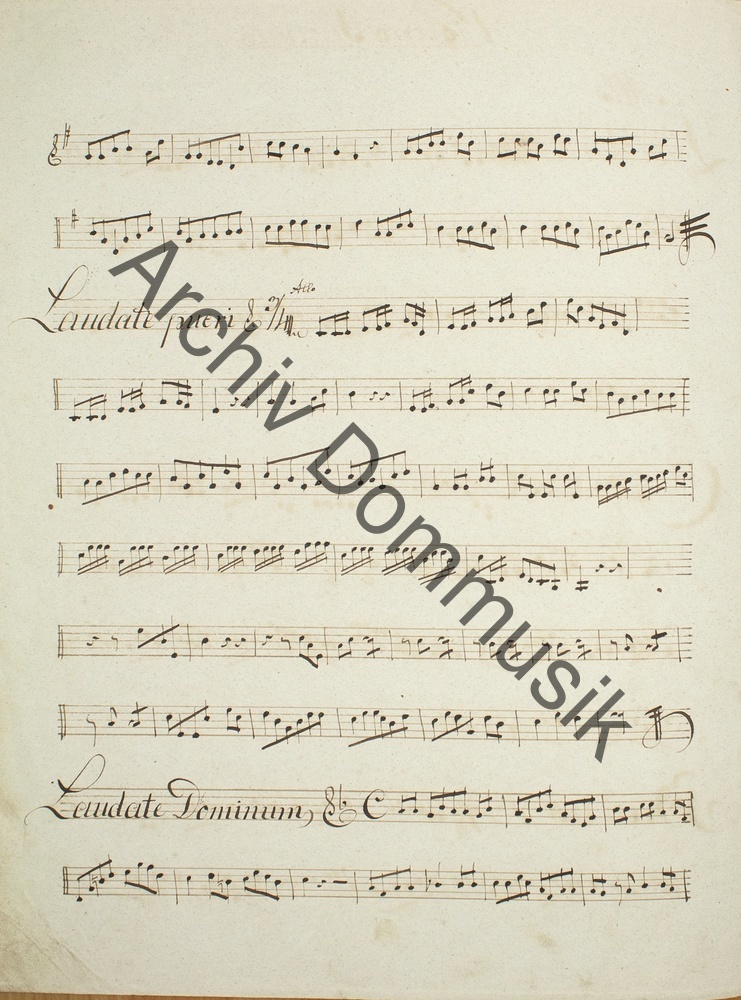 Allo
Laudate pueri 2/4
Laudate Dominum, C
Archiv Dommusik